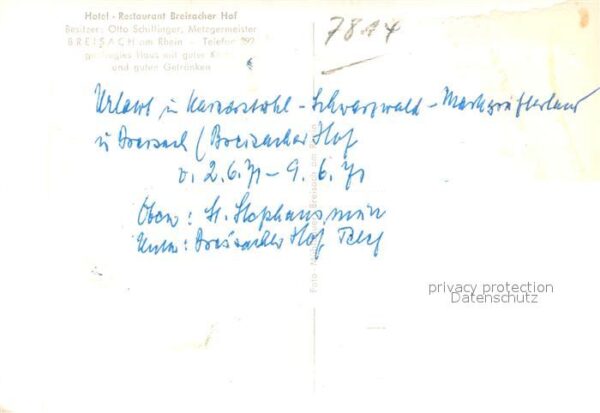 Hotel - Restaurant Breisacher Hof
Besitzer: Otto Schillinger, Metzgermeister
BREISACH am Rhein - Telefon 392
gepflegtes Haus mit guter Küche
und guten Getränken
7844
Urlaub in Kaiserstuhl - Schwarzwald - Markgräflerland
u Breisach (Breisacher Hof
v. 2.6.71 - 9.6.71
Oben: St. Stephansmün
Unten: Breisacher Hof
Breisach am Rhein
Foto
privacy protection
Datenschutz